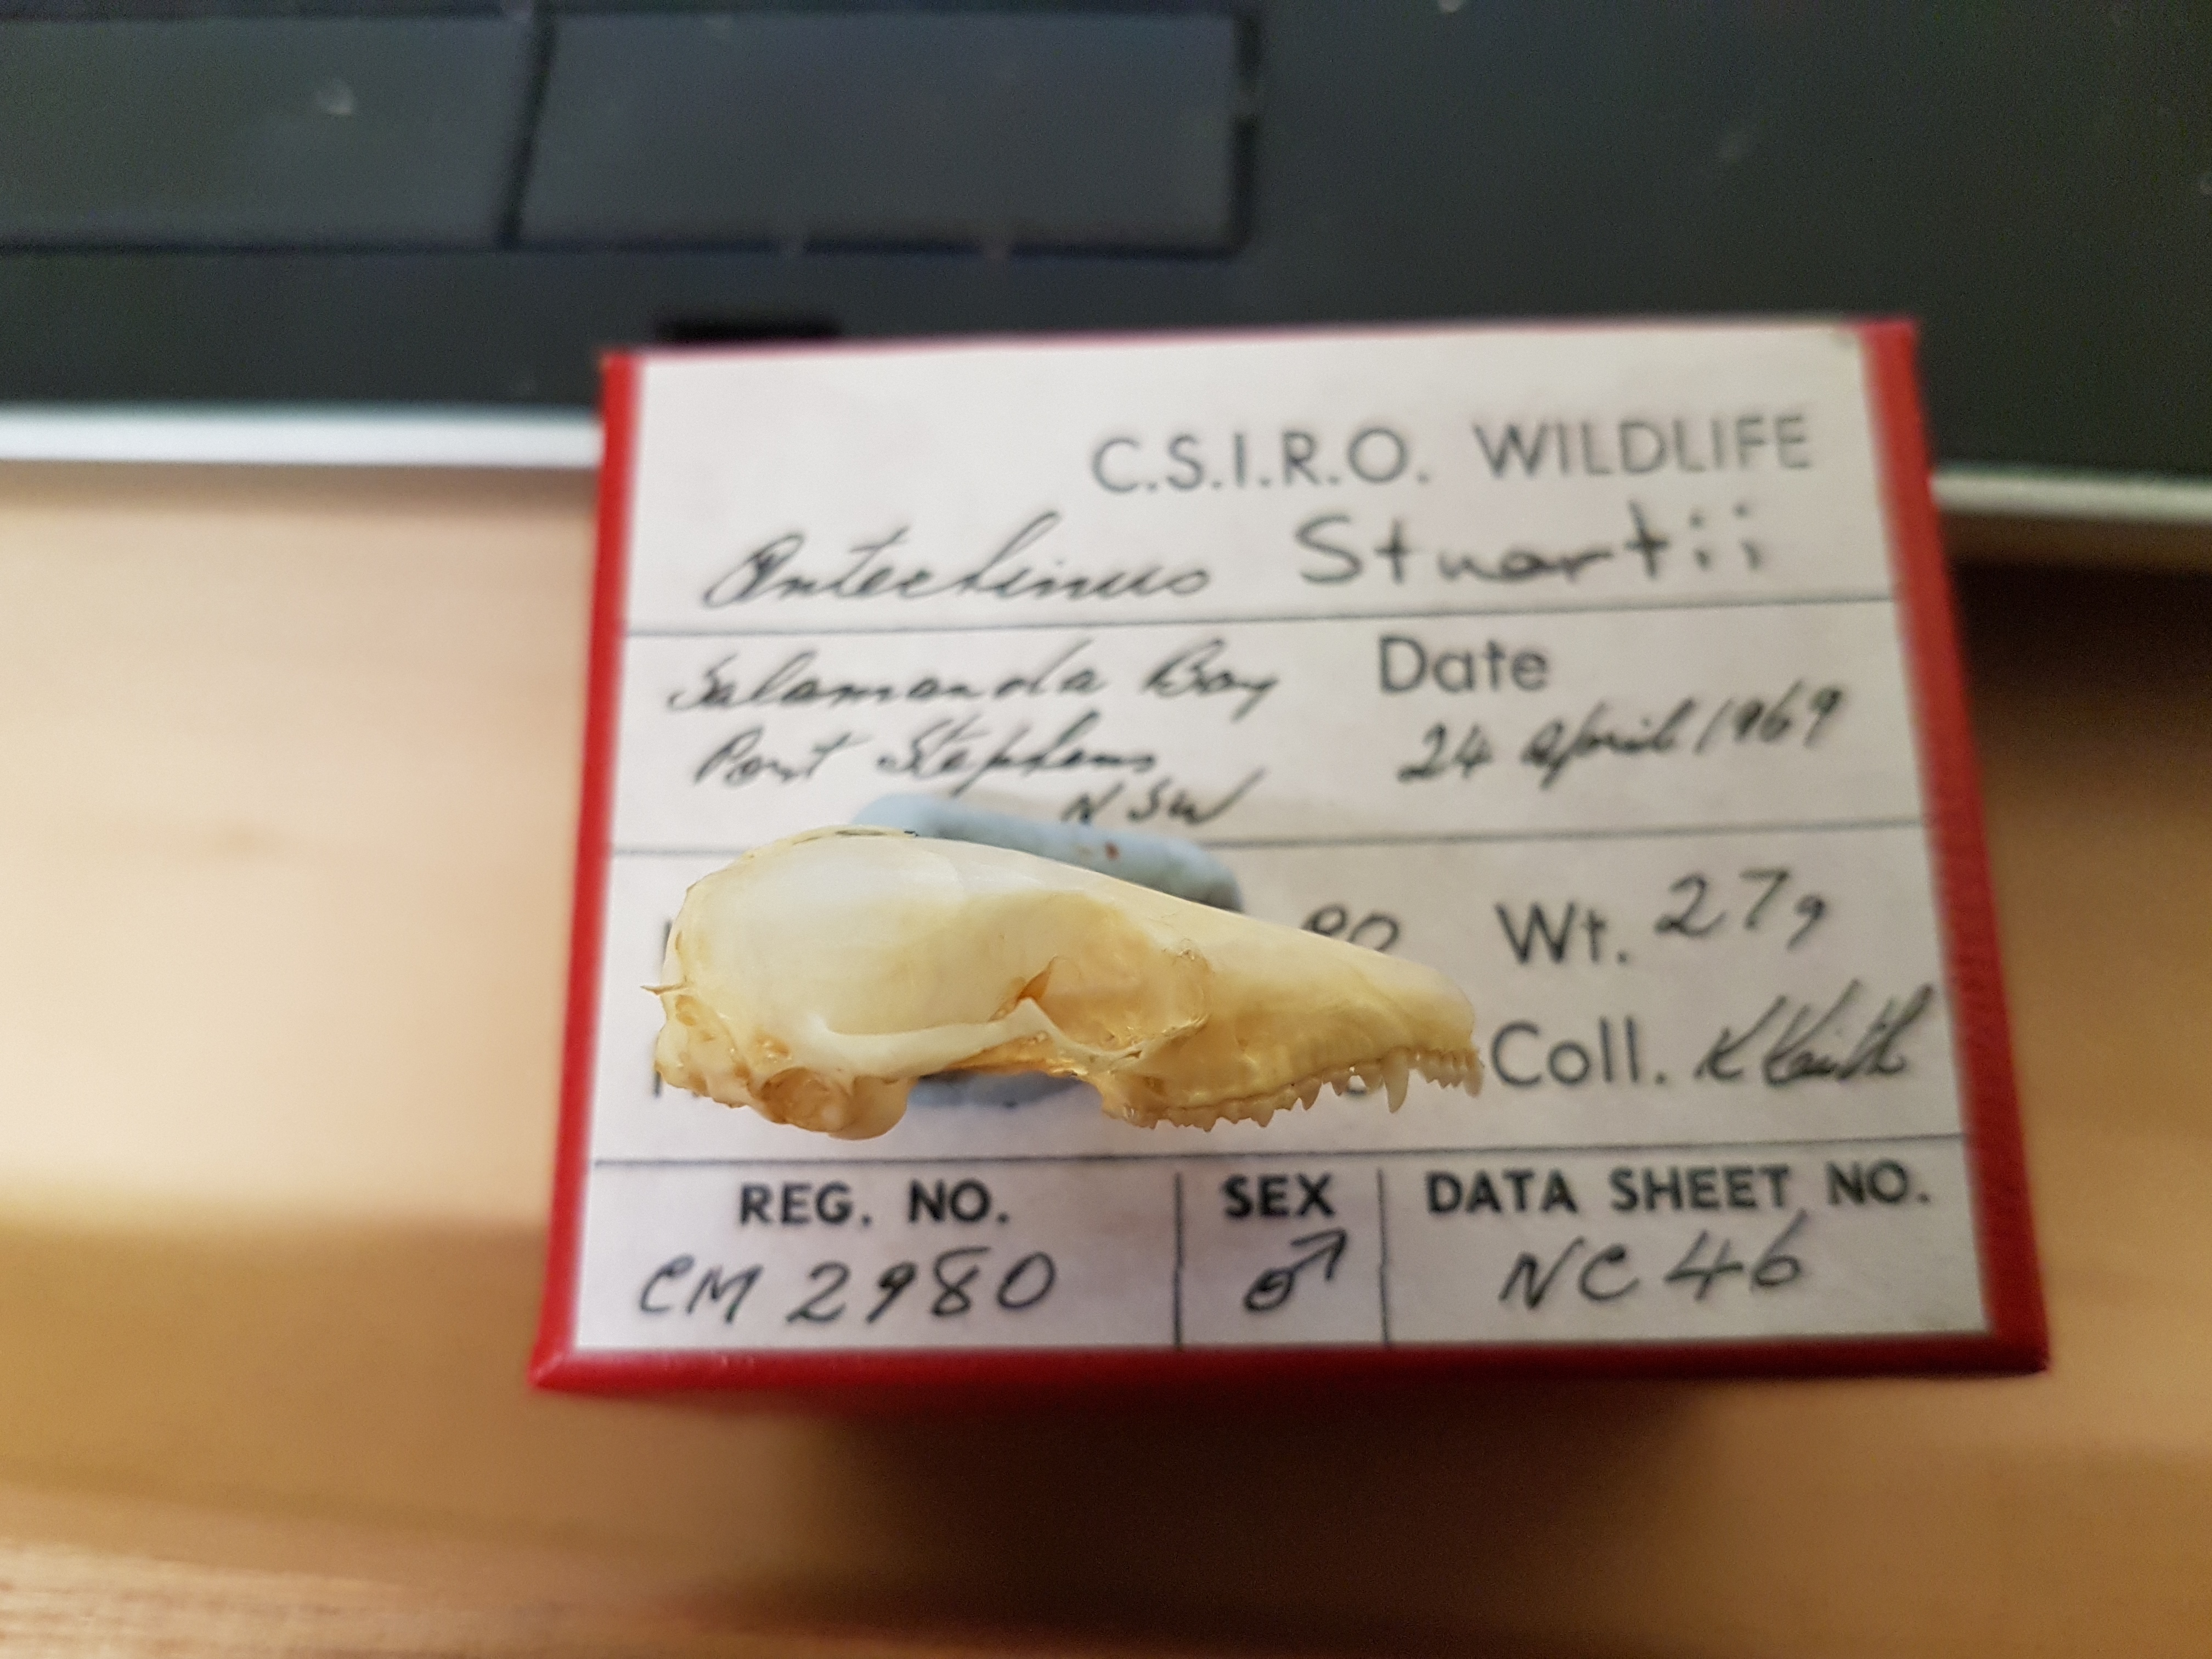 C.S.I.R.O. WILDLIFE
Antechinus Stuartii
Salamanda Bay Date
Port Stephens 24 April 1969
NSW
80 Wt. 27g
Coll.
REG. NO. SEX DATA SHEET NO.
CM 2980 ♂ NC 46